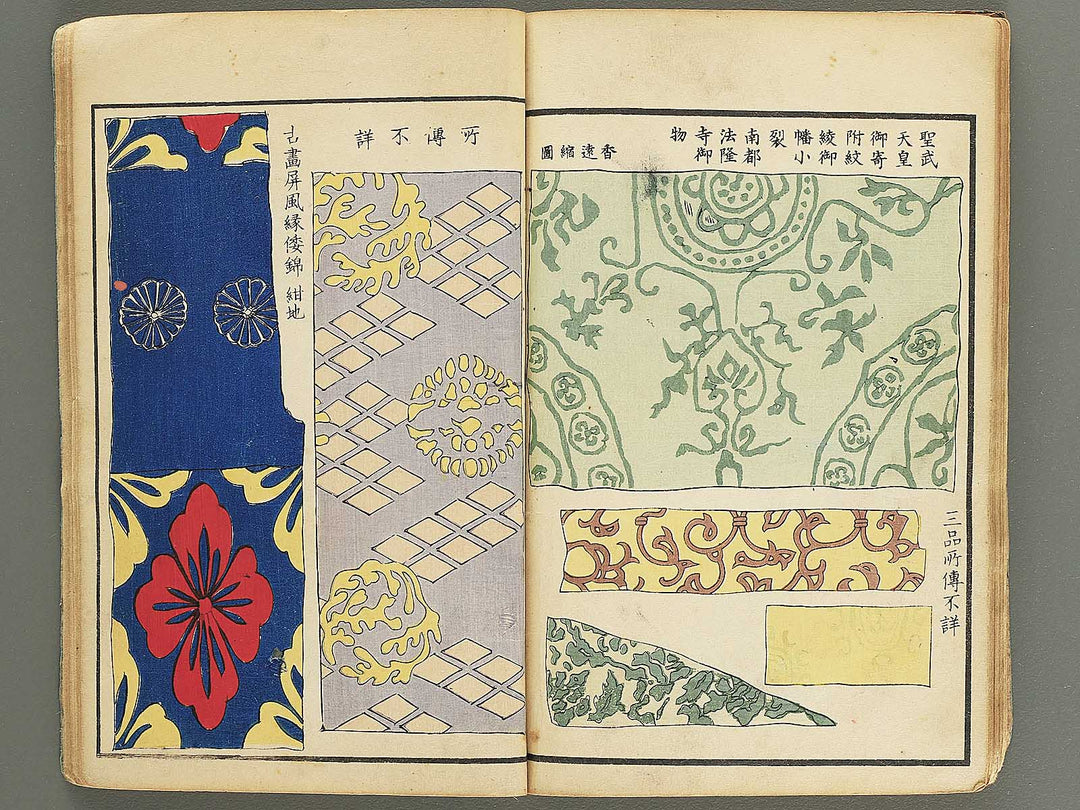 聖武
天皇
御寄
附紋
綾御
幡小
裂
南都
法隆
寺御
物
香遠縮圖
三品所傳不詳
所傳不詳
古畫屏風縁倭錦 紺地